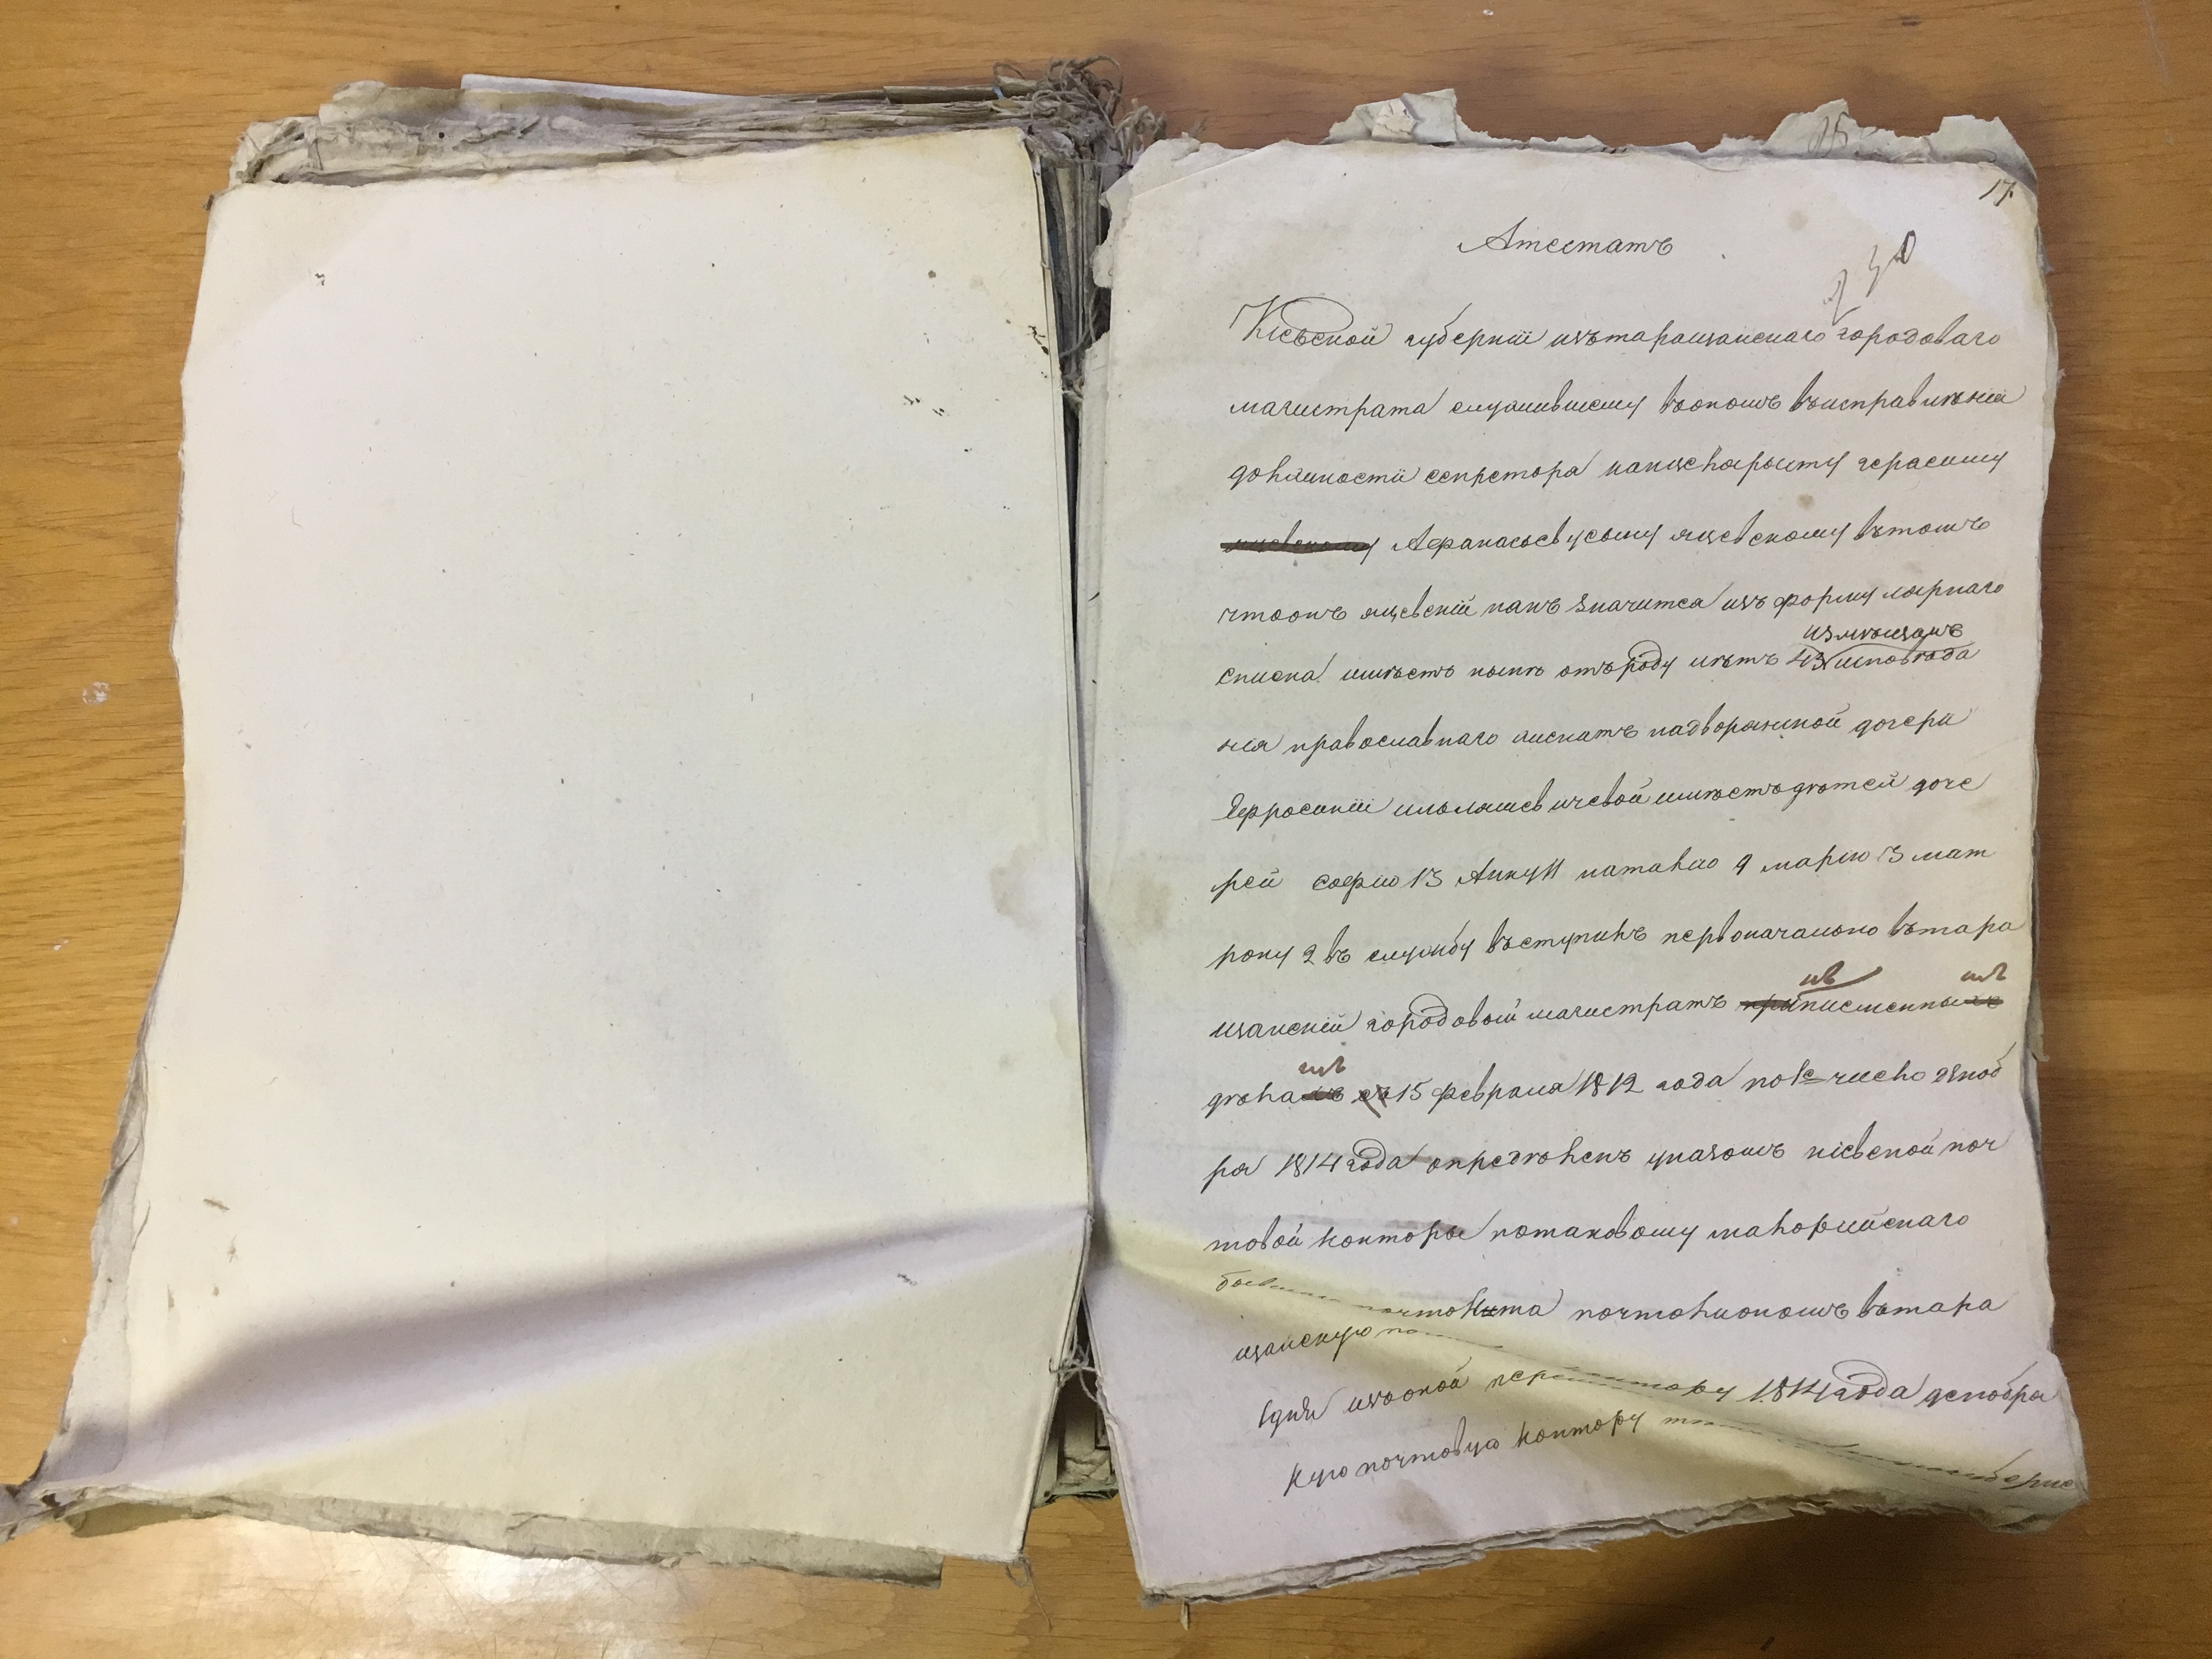 15
17
Атестатъ
240
Кіевской губерніи изътаращанскаго городоваго
магистрата служившему вономъ висправленіи
должности секретора канцеляристу герасиму
Афанасьеву сыну яцевскому втомъ
чтоонъ яцевскій какъ значится изъ формулярнаго
измещанъ
списка имѣетъ нынѣ отъроду лѣтъ 43 исповеда
нія православнаго женатъ надворянской дочери
Ефросиніи ильяшевичевой имѣетъ дѣтей доче
рей софію 13 Анну 11 наталію 9 марію 3 мат
рону 2 въ службу вступилъ первоначально втара
щанскій городовый магистратъ припесменныхъ
дѣлахъ съ 15 февраля 1812 года по 1е число декаб
ря 1814 года определенъ указомъ кіевской поч
товой конторы потаковому малорийскаго
почтамта почтоліономъ втара
щанскую
1814 года декабря
кую почтовую контору